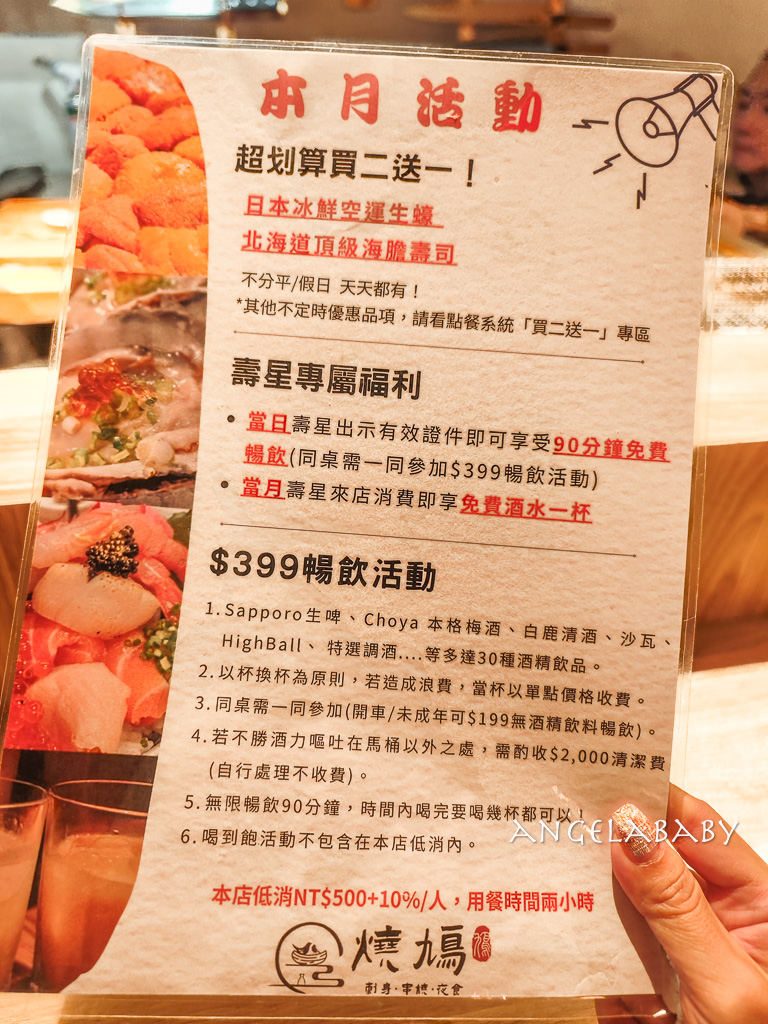 本月活動
超划算買二送一！
日本冰鮮空運生蠔
北海道頂級海膽壽司
不分平/假日 天天都有！
*其他不定時優惠品項，請看點餐系統「買二送一」專區
壽星專屬福利
• 當日壽星出示有效證件即可享受90分鐘免費
暢飲(同桌需一同參加$399暢飲活動)
• 當月壽星來店消費即享免費酒水一杯
$399暢飲活動
1. Sapporo生啤、Choya 本格梅酒、白鹿清酒、沙瓦、
HighBall、 特選調酒....等多達30種酒精飲品。
2. 以杯換杯為原則，若造成浪費，當杯以單點價格收費。
3. 同桌需一同參加(開車/未成年可$199無酒精飲料暢飲)。
4. 若不勝酒力嘔吐在馬桶以外之處，需酌收$2,000清潔費
(自行處理不收費)。
5. 無限暢飲90分鐘，時間內喝完要喝幾杯都可以！
6. 喝到飽活動不包含在本店低消內。
ANGELABABY
本店低消NT$500+10%/人，用餐時間兩小時
燒鳩
刺身·串燒·夜食